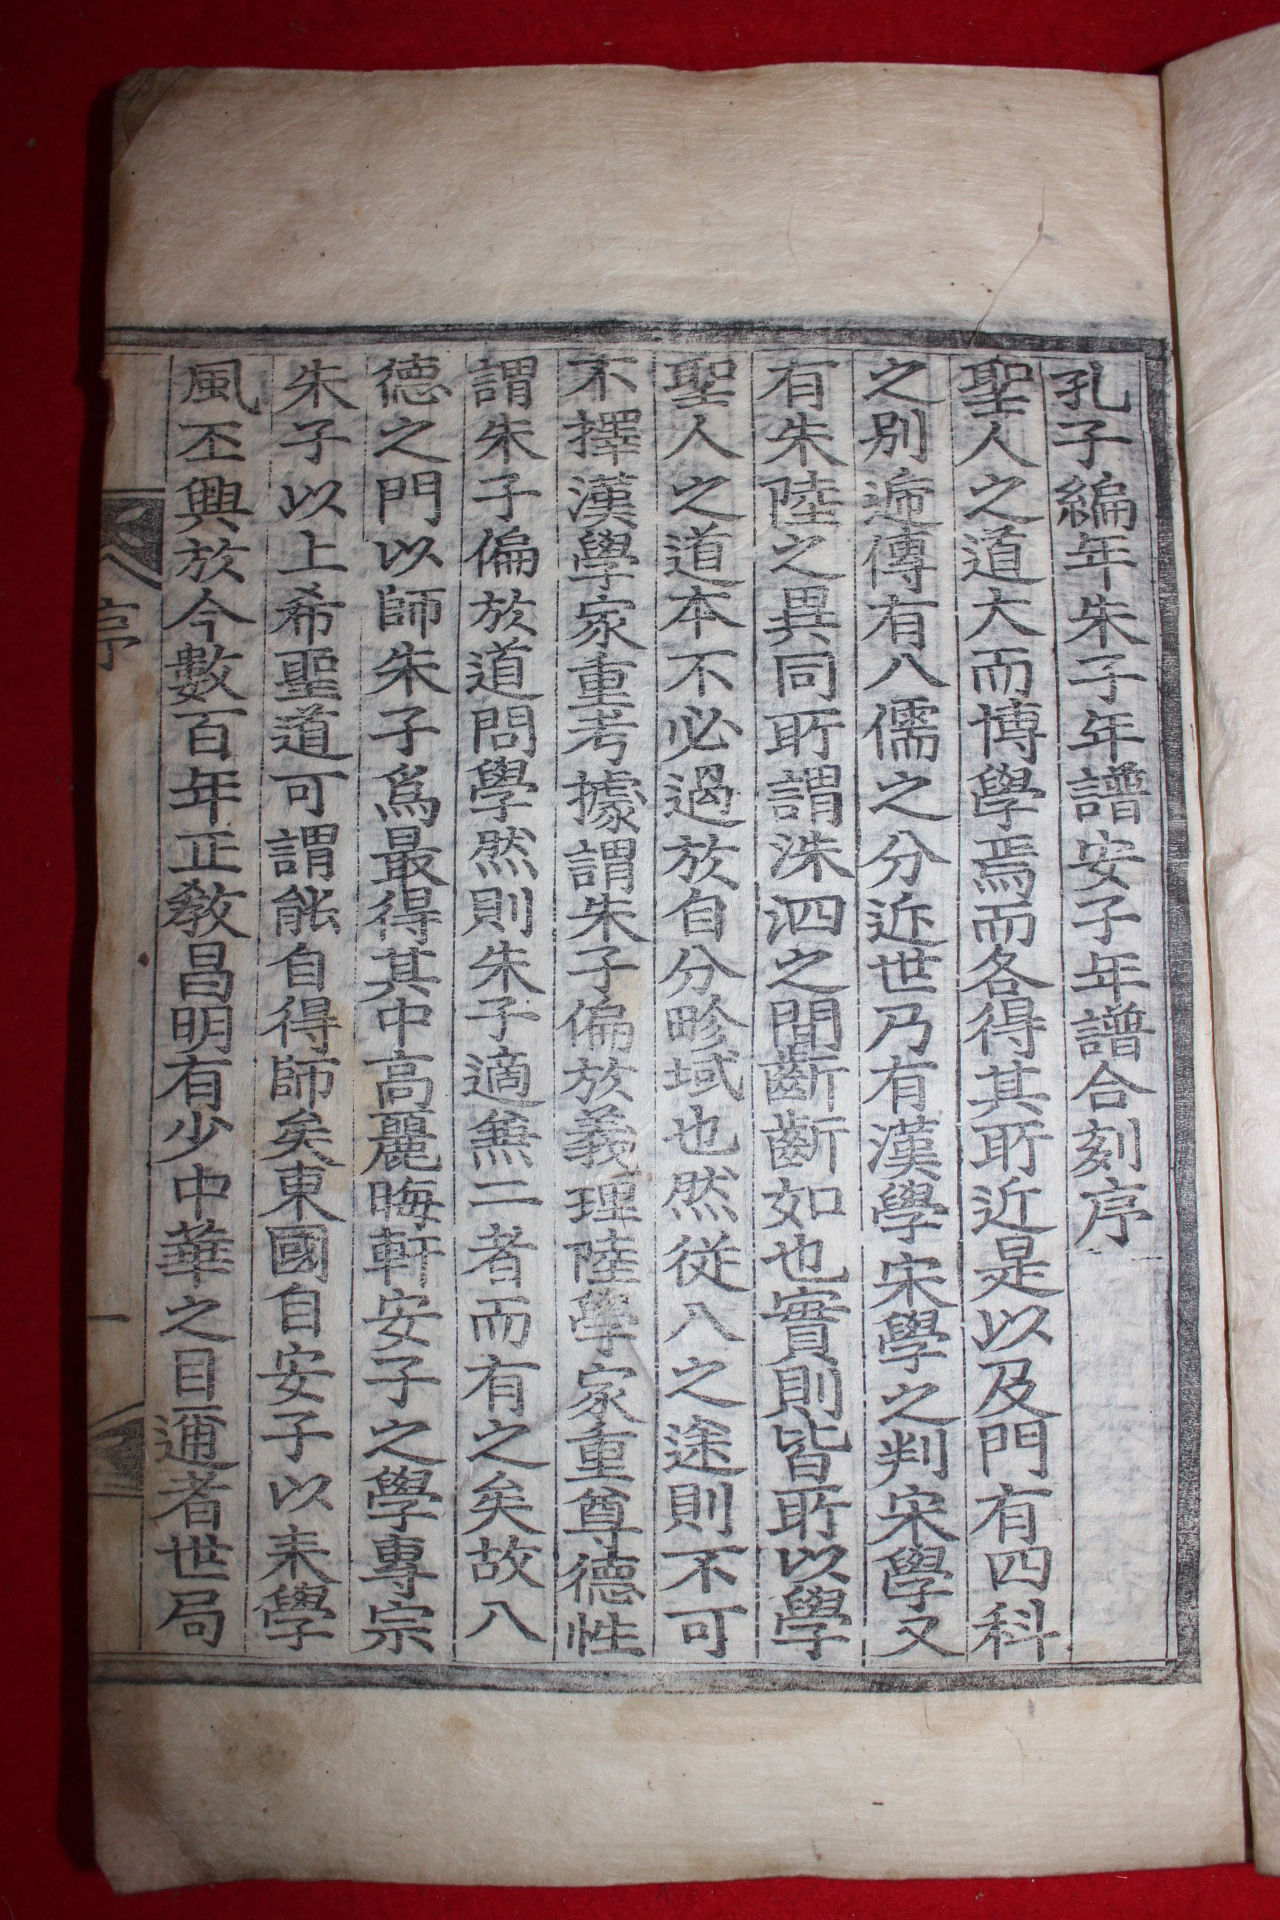 孔子編年朱子年譜安子年譜合刻序
聖人之道大而博學焉而各得其所近是以及門有四科
之别遞傳有八儒之分近世乃有漢學宋學之判宋學又
有朱陸之異同所謂洙泗之間齗齗如也實則皆所以學
聖人之道本不必過於自分畛域也然從入之途則不可
不擇漢學家重考據謂朱子偏於義理陸學家重尊德性
謂朱子偏於道問學然則朱子適無二者而有之矣故入
德之門以師朱子爲最得其中高麗晦軒安子之學專宗
朱子以上希聖道可謂能自得師矣東國自安子以來學
風丕興於今數百年正教昌明有少中華之目邇者世局
序
一